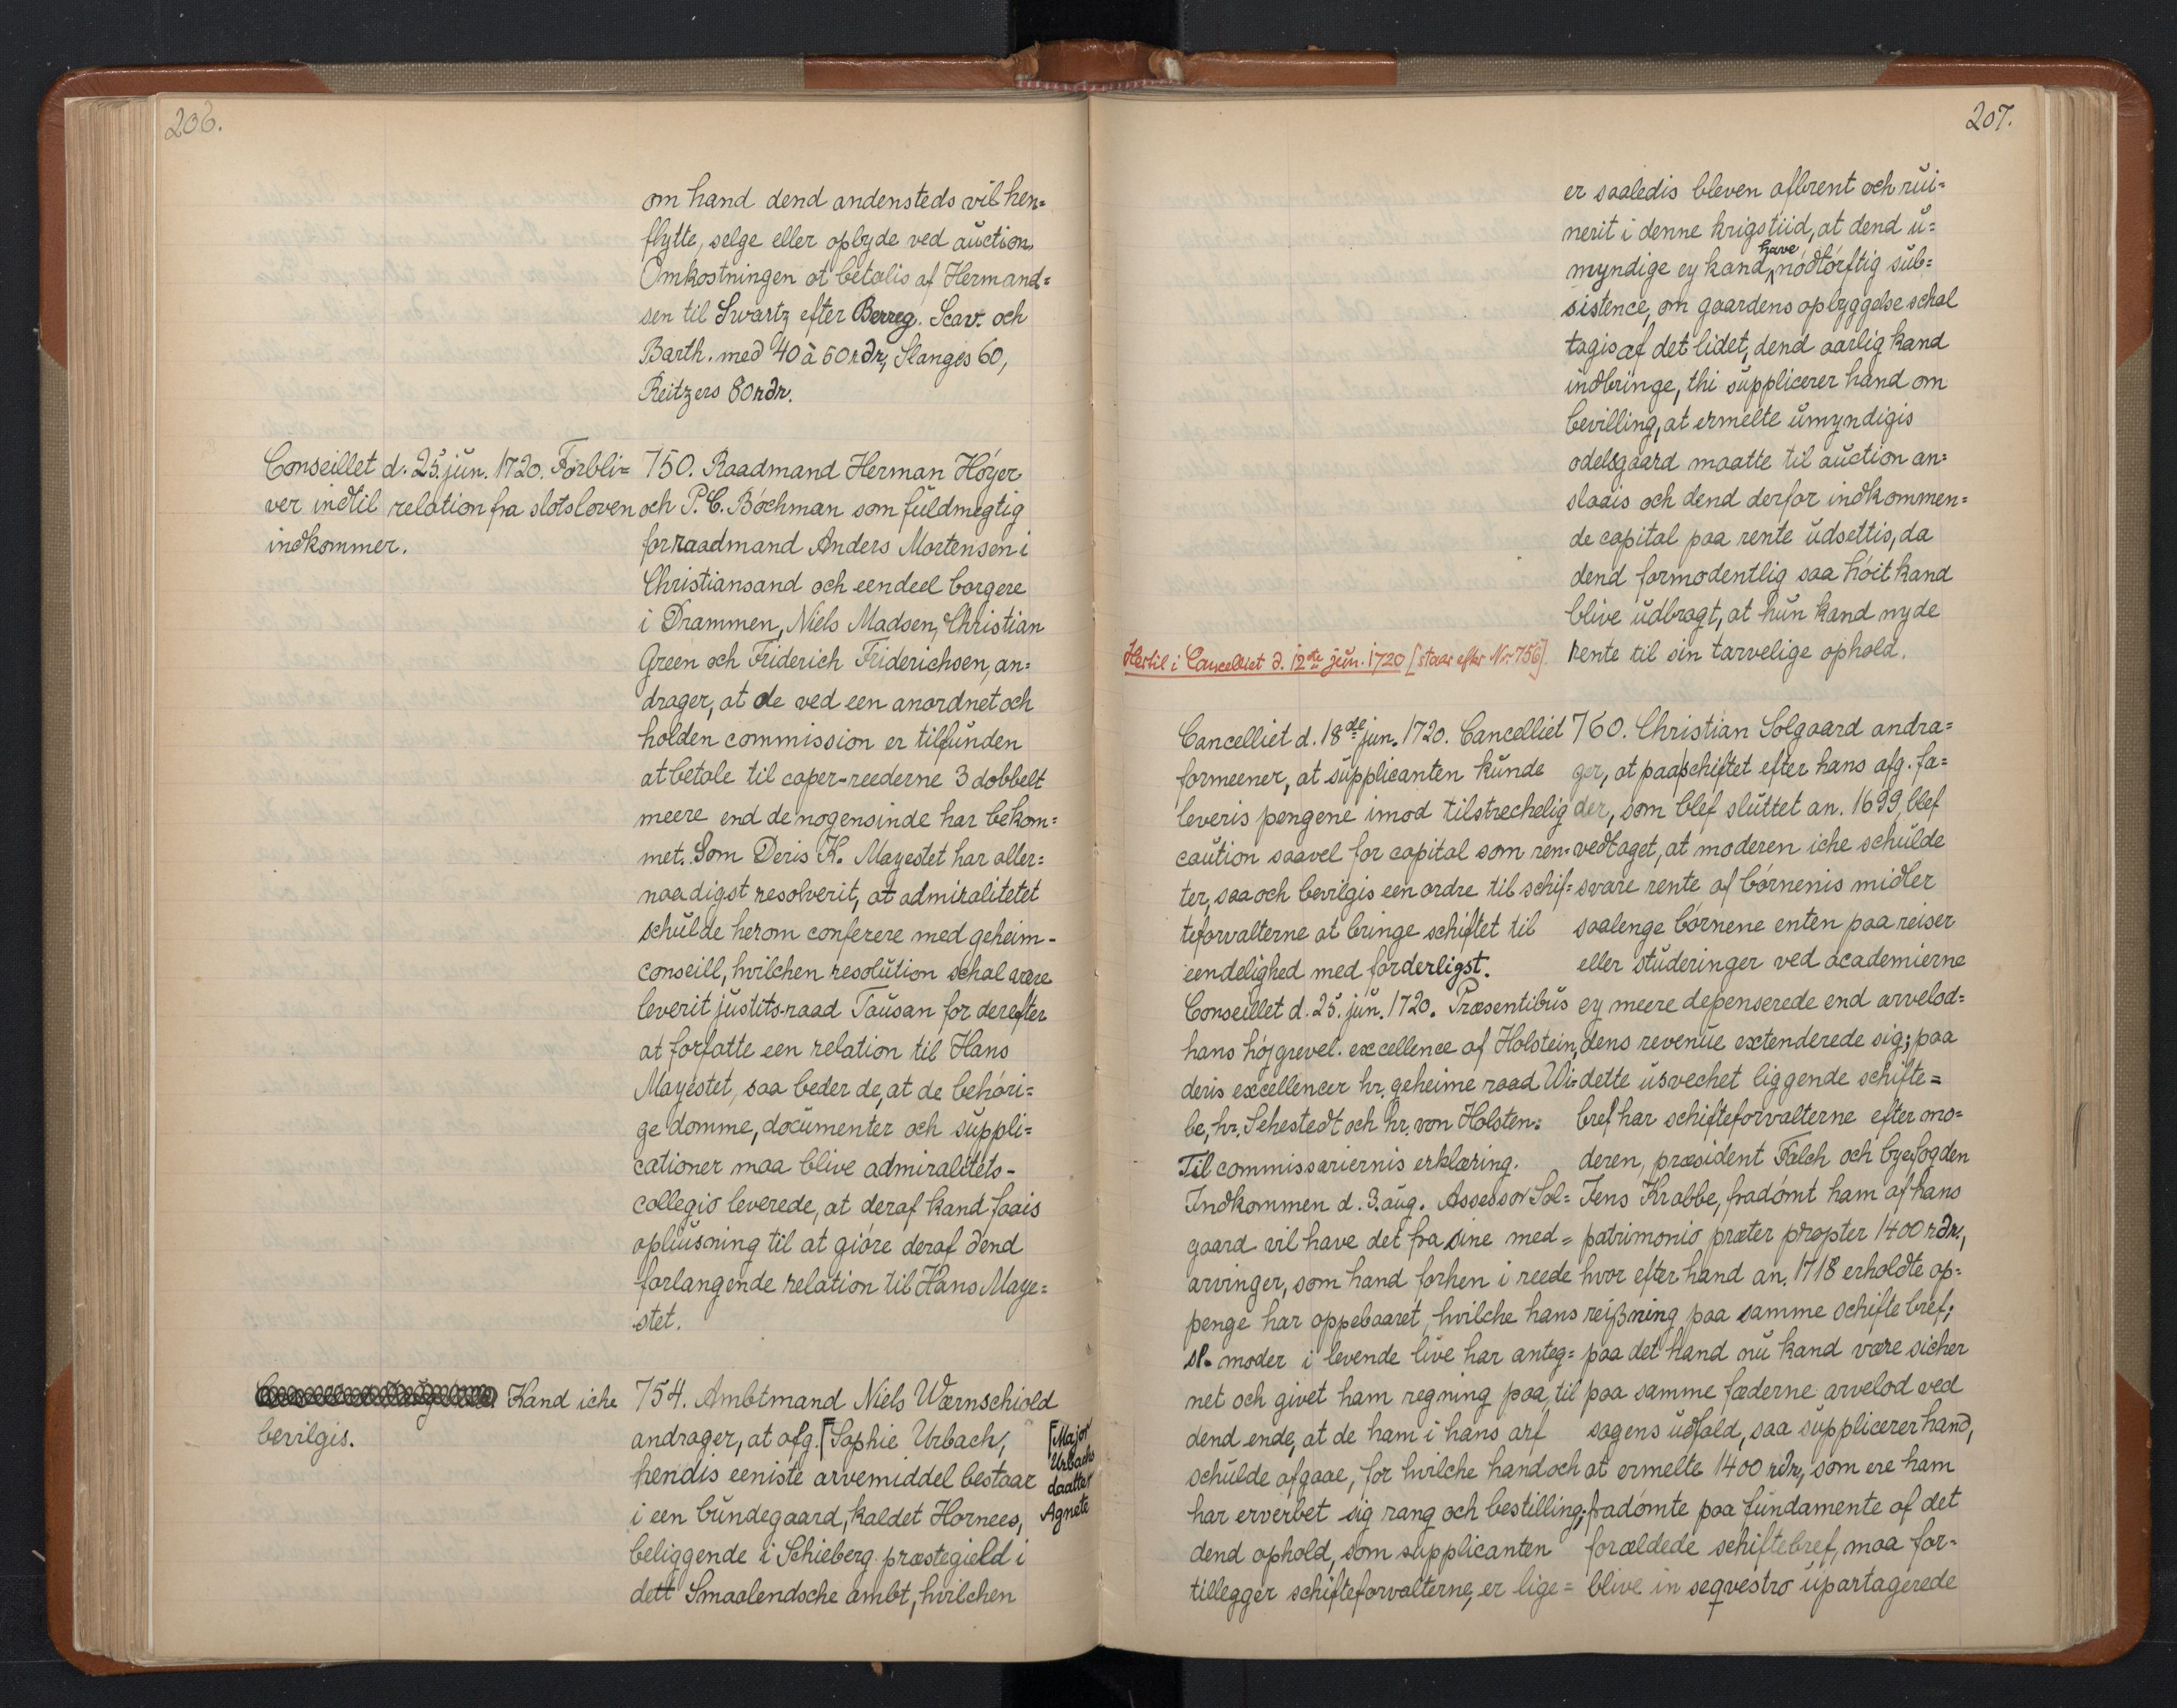 206.
om hand dend andensteds vil hen=
flytte, selge eller opbyde ved auction.
Omkostningen at betalis af Hermand=
sen til Swartz efter Berreg. Scav. och
Barth. med 40 à 50 rdr, Slanges 60,
Reitzers 80 rdr.
Conseillet d. 25. jun. 1720. Forbli=
ver indtil relation fra slotsloven
indkommer.
750. Raadmand Herman Höyer
och P. C. Böchman som fuldmegtig
for raadmand Anders Mortensen i
Christiansand och eendeel borgere
i Drammen, Niels Madsen, Christian
Green och Friderich Friderichsen, an=
drager, at de ved een anordnet och
holden commission er tilfunden
at betale til caper-reederne 3 dobbelt
meere end de nogensinde har bekom=
met. Som Deris K. Mayestet har aller=
naadigst resolverit, at admiralitetet
schulde herom conferere med geheim-
conseill, hvilchen resolution schal være
leverit justits-raad Tausan for derefter
at forfatte een relation til Hans
Mayestet, saa beder de, at de behöri=
ge domme, documenter och suppli=
cationer maa blive admiralitets-
collegio leverede, at deraf kand faais
opliusning til at giöre deraf dend
forlangende relation til Hans Maye=
stet.
Kand iche
bevilgis.
754. Ambtmand Niels Wærnschiold
andrager, at afg. [Sophie Urbach,
hendis eeniste arvemiddel bestaar
i een bundegaard, kaldet Hornees,
beliggende i Schieberg præstegield i
dett Smaalendsche ambt, hvilchen
[Major
Urbachs
daatter
Agnete
207.
er saaledis bleven afbrent och rui=
nerit i denne krigstiid, at dend u=
myndige ey kand have nödtörftig sub=
sistence, om gaardens opbyggelse schal
tagis af det lidet, dend aarlig kand
indbringe, thi supplicerer hand om
bevilling, at ermelte umyndigis
odelsgaard maatte til auction an=
slaais och dend derfor indkommen=
de capital paa rente udsettis, da
dend formodentlig saa höit kand
blive udbragt, at hun kand nyde
rente til sin tarvelige ophold.
Hertil i Cancelliet d. 12te jun. 1720 [staar efter Nr 756].
Cancelliet d. 18de jun. 1720. Cancelliet
formeener, at supplicanten kunde
leveris pengene imod tilstrechelig
caution saavel for capital som ren=
ter, saa och bevilgis een ordre til schif=
teforvalterne at bringe schiftet til
eendelighed med forderligst.
Conseillet d. 25. jun. 1720. Præsentibus
hans höjgrevel. excellence af Holstein,
deris excellencer hr. geheime raad Wi=
be, hr. Sehestedt och hr. von Holsten:
Til commissariernis erklæring.
Indkommen d. 3. aug. Assessor Sol=
gaard vil have det fra sine med=
arvinger, som hand forhen i reede
penge har oppebaaret, hvilche hans
sl. moder i levende live har anteg=
net och givet ham regning paa, til
dend ende, at de ham i hans arf
schulde afgaae, for hvilche hand och
har erverbet sig rang och bestilling;
dend ophold, som supplicanten
tillegger schifteforvalterne, er lige=
760. Christian Solgaard andra=
ger, at paa schiftet efter hans afg. fa=
der, som blef sluttet an. 1699, blef
vedtaget, at moderen iche schulde
svare rente af börnenis midler
saalenge börnene enten paa reiser
eller studeringer ved academierne
ey meere depenserede end arvelod=
dens revenue extenderede sig; paa
dette usvechet liggende schifte=
bref har schifteforvalterne efter mo=
deren, præsident Falch och byefogden
Jens Krabbe, fradömt ham af hans
patrimonio præter propter 1400 rdr.,
hvor efter hand an. 1718 erholdte op=
reißning paa samme schifte bref;
paa det hand nu kand være sicher
paa samme fæderne arvelod ved
sagens udfald, saa supplicerer hand,
at ermelte 1400 rdr, som ere ham
fradömte paa fundamente af det
forældede schiftebref, maa for=
blive in seqvestro upartagerede